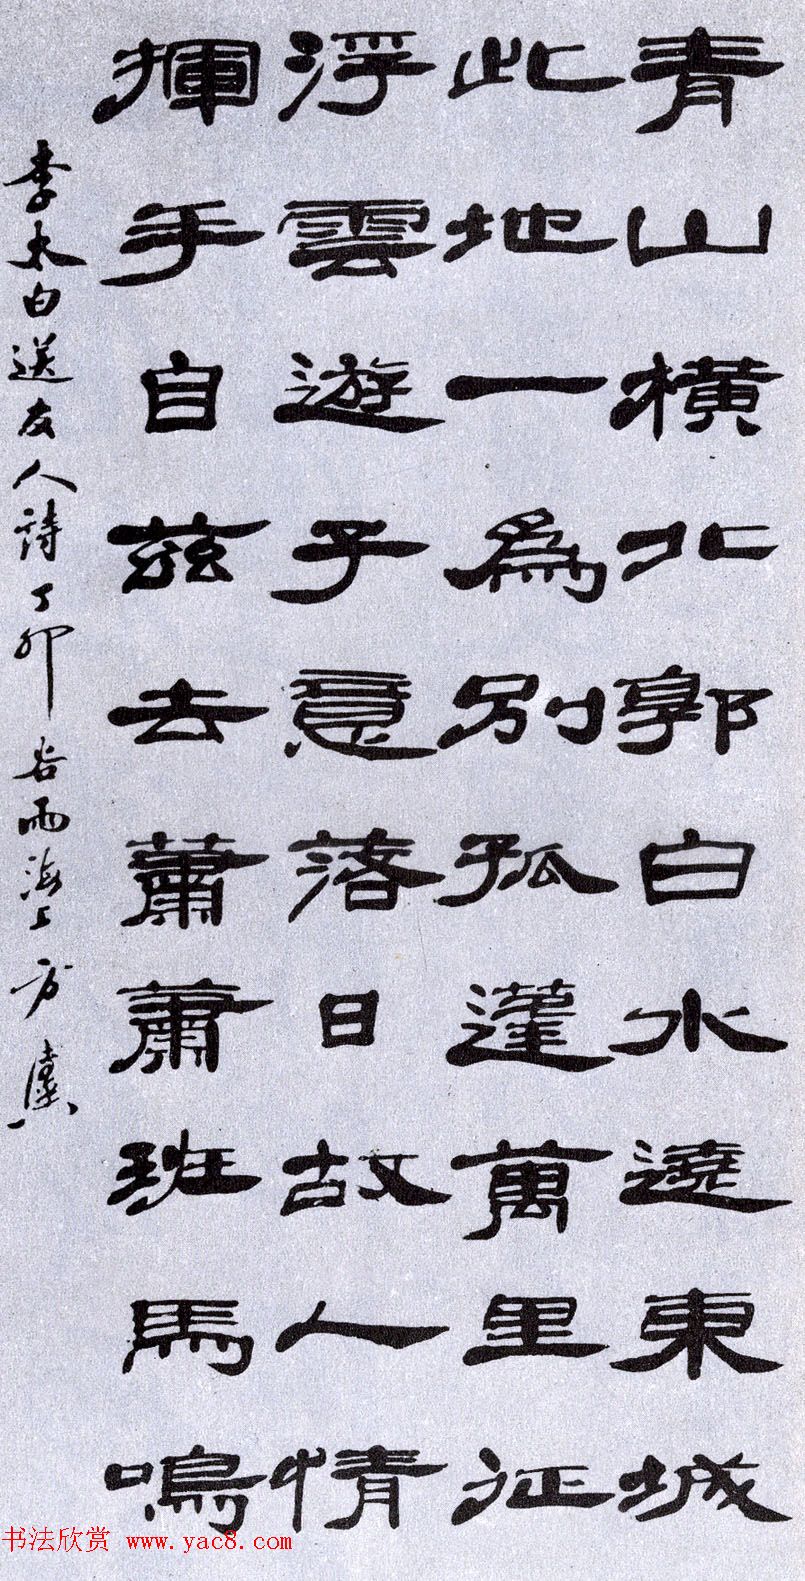 青山橫北郭白水遶東城
此地一爲別孤蓬萬里征
浮雲遊子意落日故人情
揮手自茲去蕭蕭班馬鳴
李太白送友人詩丁卯谷雨海上方
书法欣赏 www.yac8.com